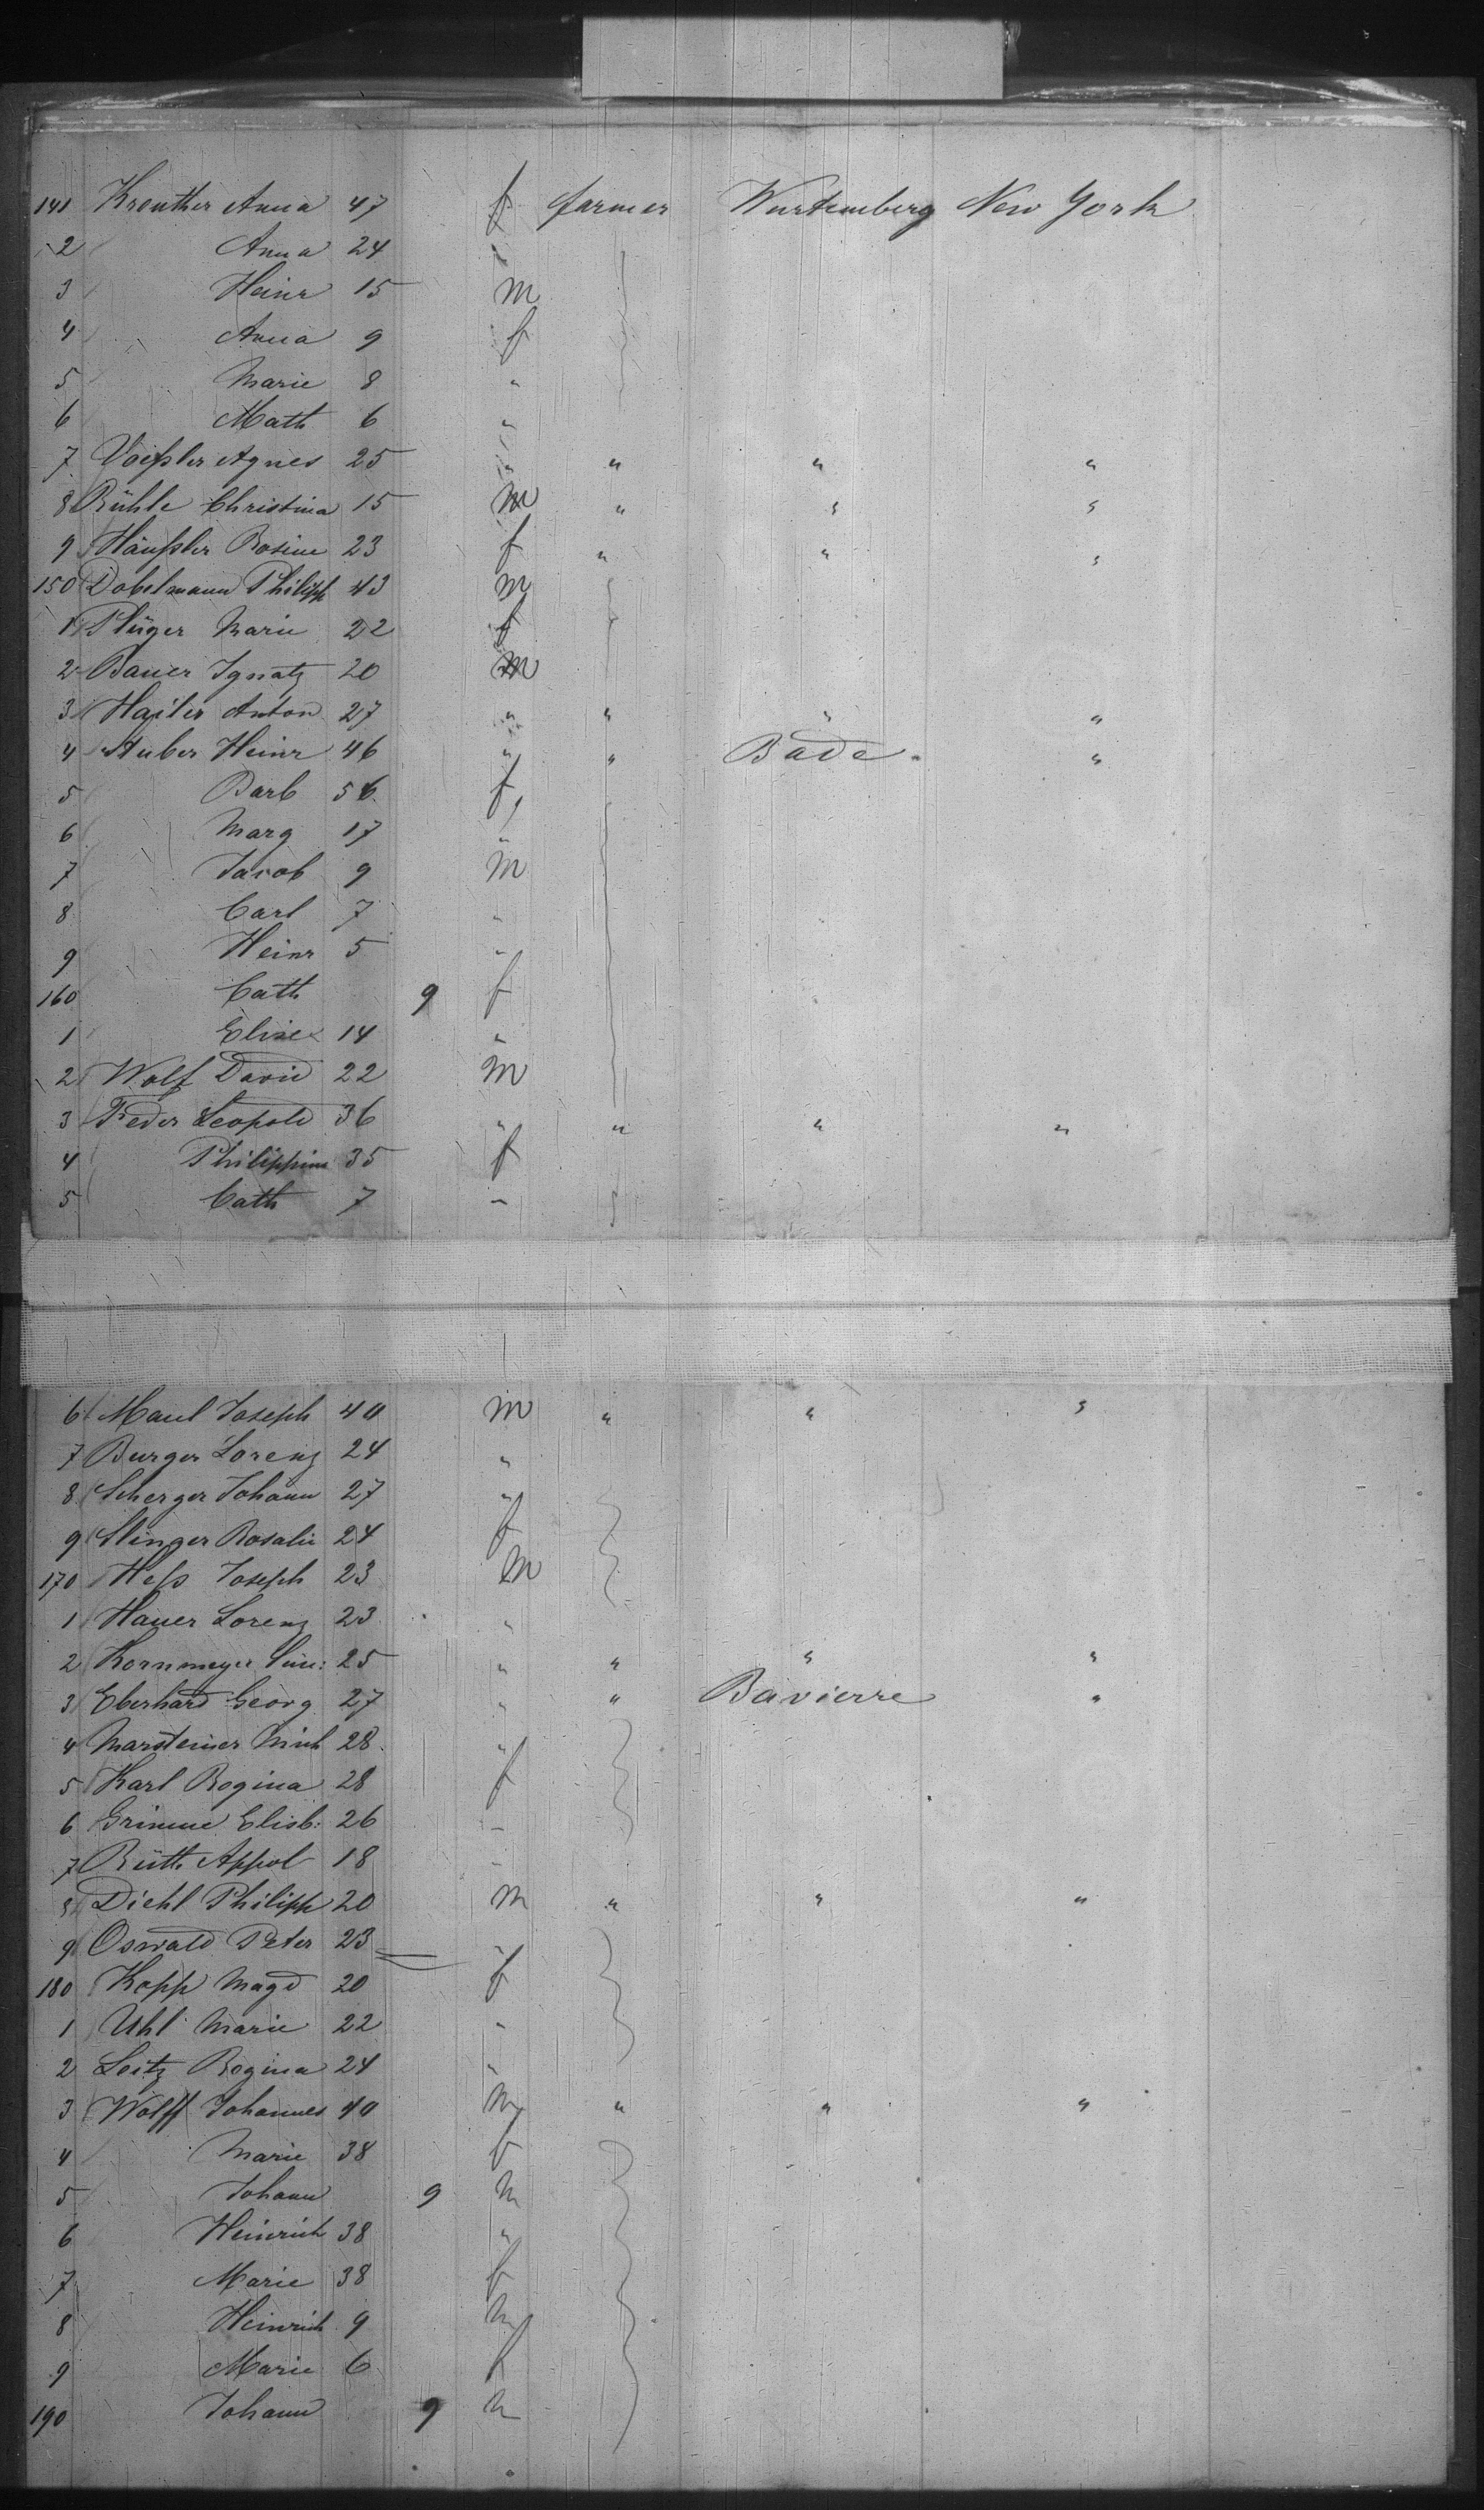 141 Kreuther Anna 47 f farmer Wurtemberg New York
2 Anna 24 "
3 Heinr 15 m
4 Anna 9 f
5 Marie 8 "
6 Math 6 "
7 Voißler Agnes 25 " " " "
8 Rühle Christina 15 m " " "
9 Häußler Rosine 23 f " " "
150 Dobelmann Philipp 43 m
1 Plüger Marie 22 f
2 Bauer Ignatz 20 m
3 Hailer Anton 27 " " " "
4 Stuber Heinr 46 " " Bade "
5 Barb 56 f
6 Marg 17 "
7 Jacob 9 m
8 Carl 7 "
9 Heinr 5 "
160 Cath 9 f
1 Elise 14 "
2 Wolf David 22 m
3 Feder Leopold 36 " " " "
4 Philippine 35 f
5 Cath 7 "
6 Maul Joseph 40 m " " "
7 Burger Lorenz 24 "
8 Scherger Johann 27 "
9 Slinger Rosalie 24 f
170 Heß Joseph 23 m
1 Hauer Lorenz 23 "
2 Kornmeyer 25 " " " "
3 Eberhard Georg 27 " " Bavierre "
4 Marsteiner Mich 28 "
5 Karl Regina 28 f
6 Grimme Elisb: 26 "
7 Rüth Appol 18 "
8 Diehl Philipp 20 m " " "
9 Oswald Peter 23 "
180 Kopp Magd 20 f
1 Uhl Marie 22 "
2 Seitz Regina 24 "
3 Wolff Johannes 40 m " " "
4 Marie 38 f
5 Johann 9 m
6 Heinrich 38 "
7 Marie 38 f
8 Heinrich 9 m
9 Marie 6 f
190 Johann 9 m